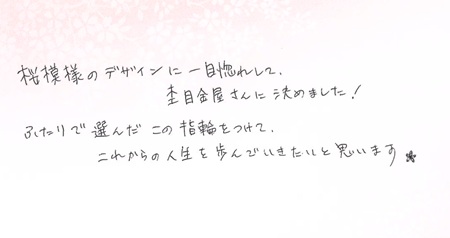 桜模様のデザインに一目惚れして、
杢目金屋さんに決めました!
ふたりで選んだこの指輪をつけて、
これからの人生を歩んでいきたいと思います